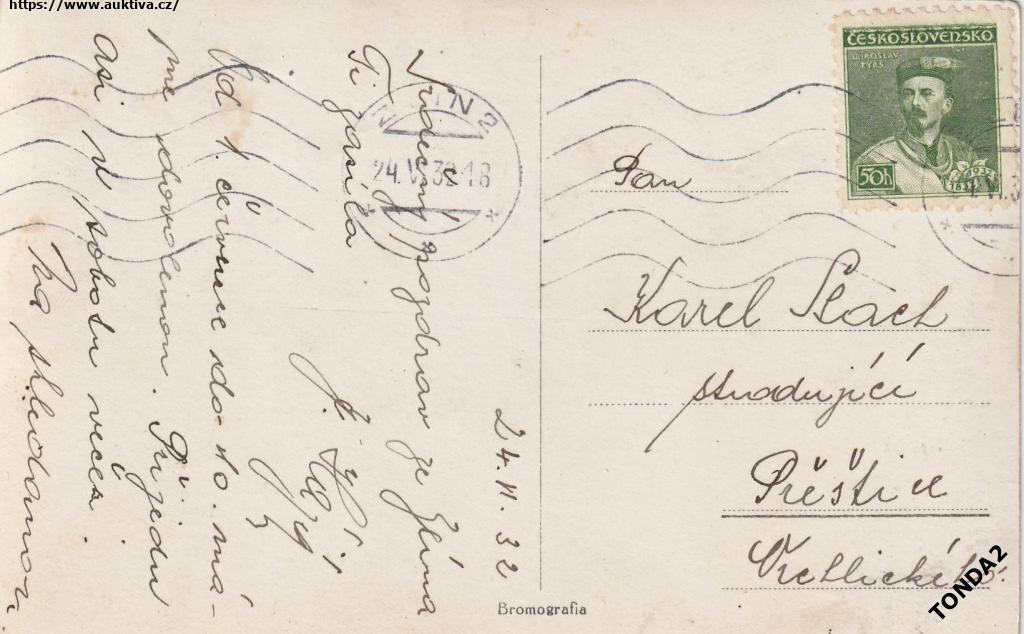 https://www.auktiva.cz/
ČESKOSLOVENSKO
MIROSLAV
TYRŠ
50h
1932
24.VI.32-18
Pan
Karel
studující
Přeštice
24.VI.32
Srdečný pozdrav ze Zlína
Ti zasílá
J.
Od 1. července do 10. má-
me dovolenou. Přijedu
asi v sobotu večer
Na shledanou
Bromografia
TONDA2